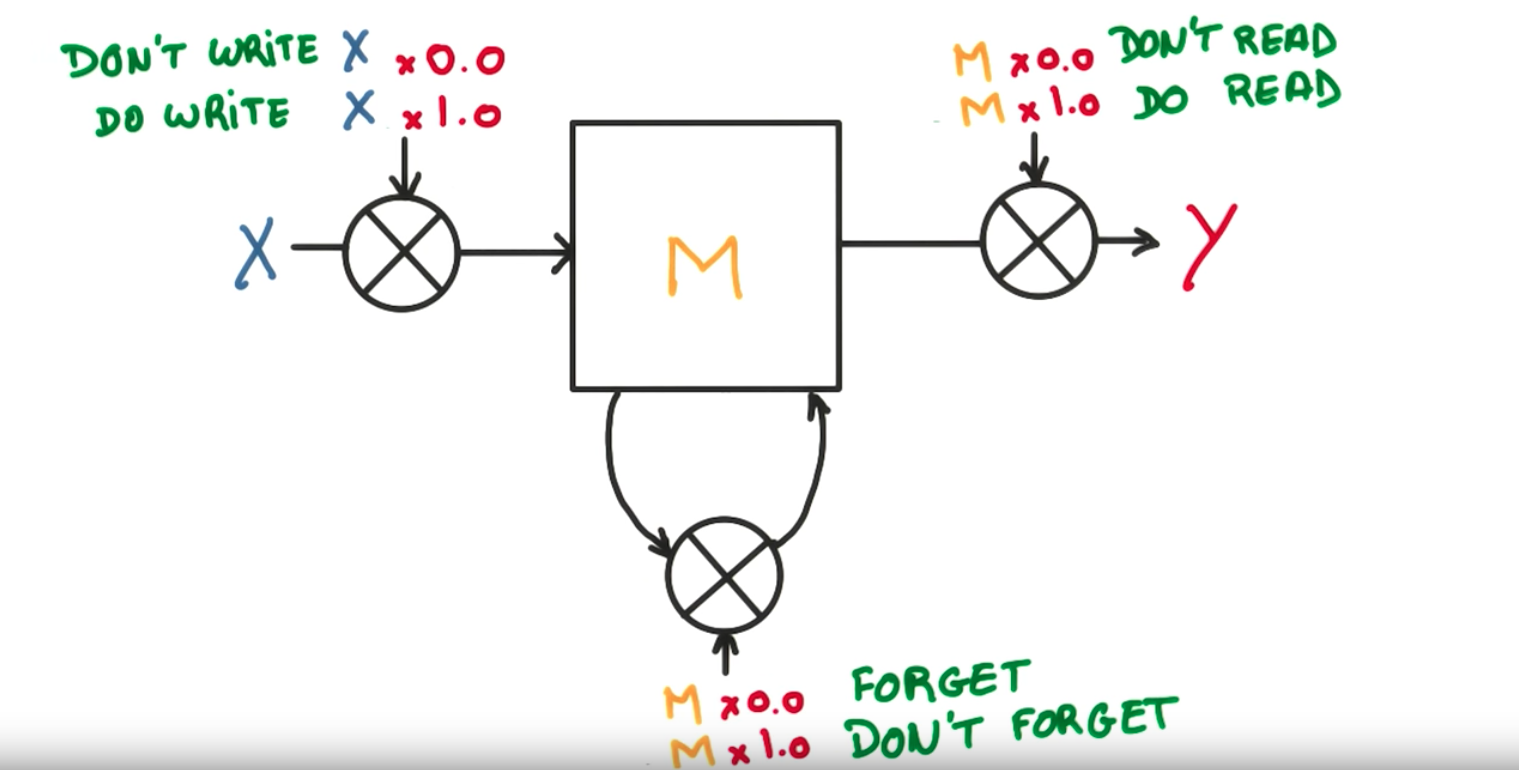 DON'T WRITE X x0.0
DO WRITE X x1.0
M x0.0 DON'T READ
M x1.0 DO READ
X
M
Y
M x0.0 FORGET
M x1.0 DON'T FORGET